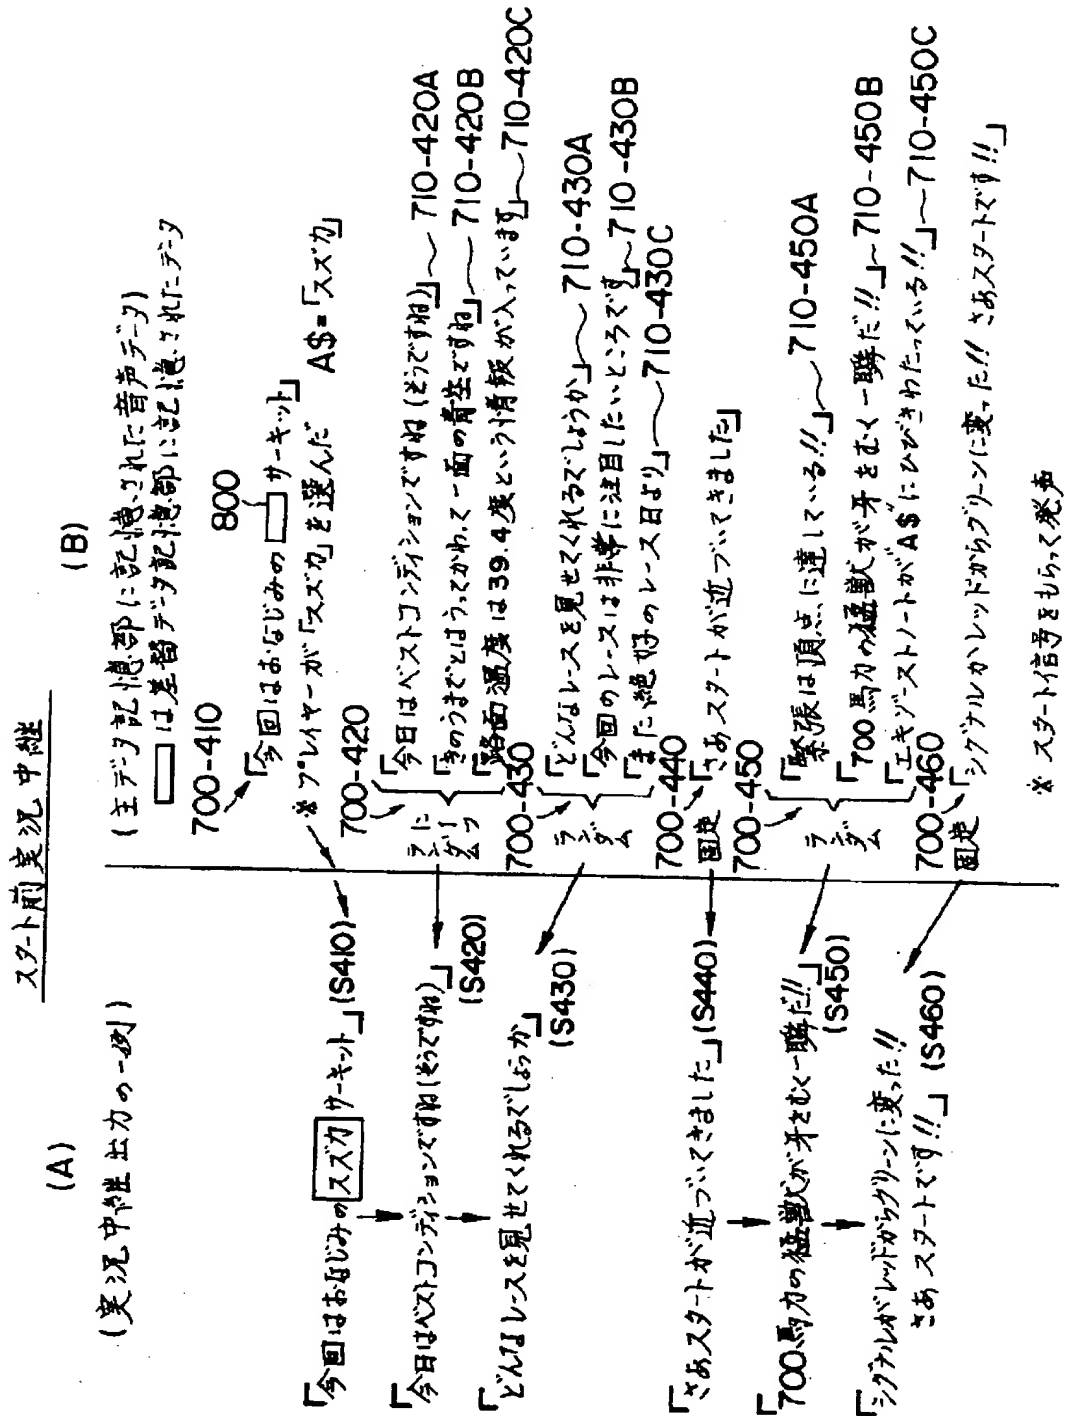 スタート前実況中継
(A)
(実況中継出力の一例)
「今回はおなじみのスズカサーキット」(S410)
「今日はベストコンディションですね(そうですね)」
(S420)
「どんなレースを見せてくれるでしょうか」
(S430)
「さあスタートが近づいてきました」(S440)
「700馬力の猛獣が牙をむく一瞬だ!!」
(S450)
「シグナルがレッドからグリーンに変った!!
さあスタートです!!」(S460)
(B)
(主データ記憶部に記憶された音声データ)
は基督データ記憶部に記憶されたデータ
700-410
800
「今回はおなじみの サーキット」
※プレイヤーが「スズカ」を選んだ A$=「スズカ」
700-420
ランダムに
「今日はベストコンディションですね(そうですね)」~710-420A
「きのうまでとはうってかわって一面の青空ですね」~710-420B
「路面温度は39.4度という情報が入っています」~710-420C
700-430
ランダム
「どんなレースを見せてくれるでしょうか」~710-430A
「今回のレースは非常に注目したいところです」~710-430B
「また絶好のレース日より」~710-430C
700-440
固定
「さあスタートが近づいてきました」
700-450
ランダム
「緊張は頂点に達している!!」~710-450A
「700馬力の猛獣が牙をむく一瞬だ!!」~710-450B
「エキゾーストノートが"A$"にひびきわたっている!!」~710-450C
700-460
固定
「シグナルがレッドからグリーンに変った!! さあスタートです!!」
※スタート信号をもらって発声